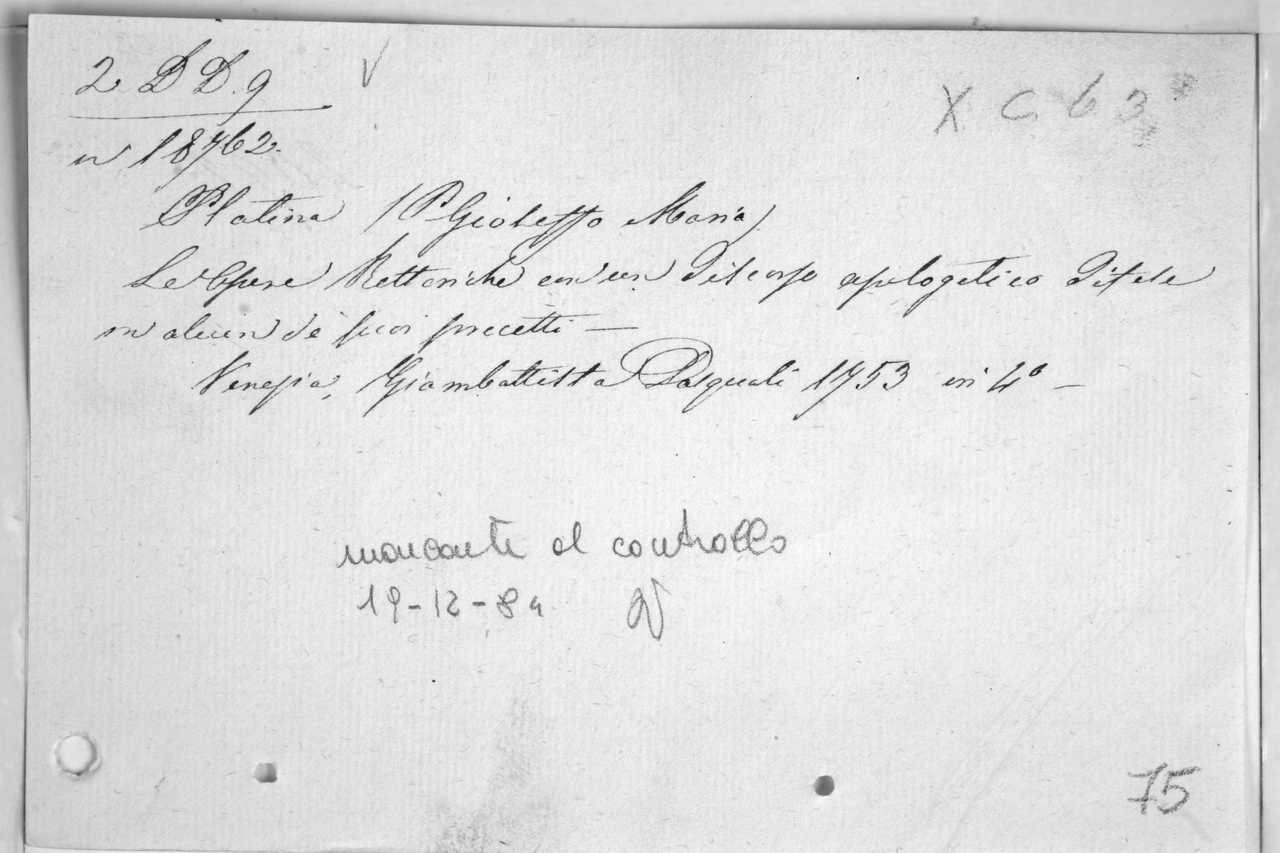 2 DD. 9 V
X C 63
n 18762.
Platina (P Gioseffo Maria)
Le Opere Rettoriche con un Discorso apologetico Difese
in alcun de' suoi precetti —
Venezia, Giambattista Pasquali 1753 in 4° —
mancante al controllo
19-12-84
75